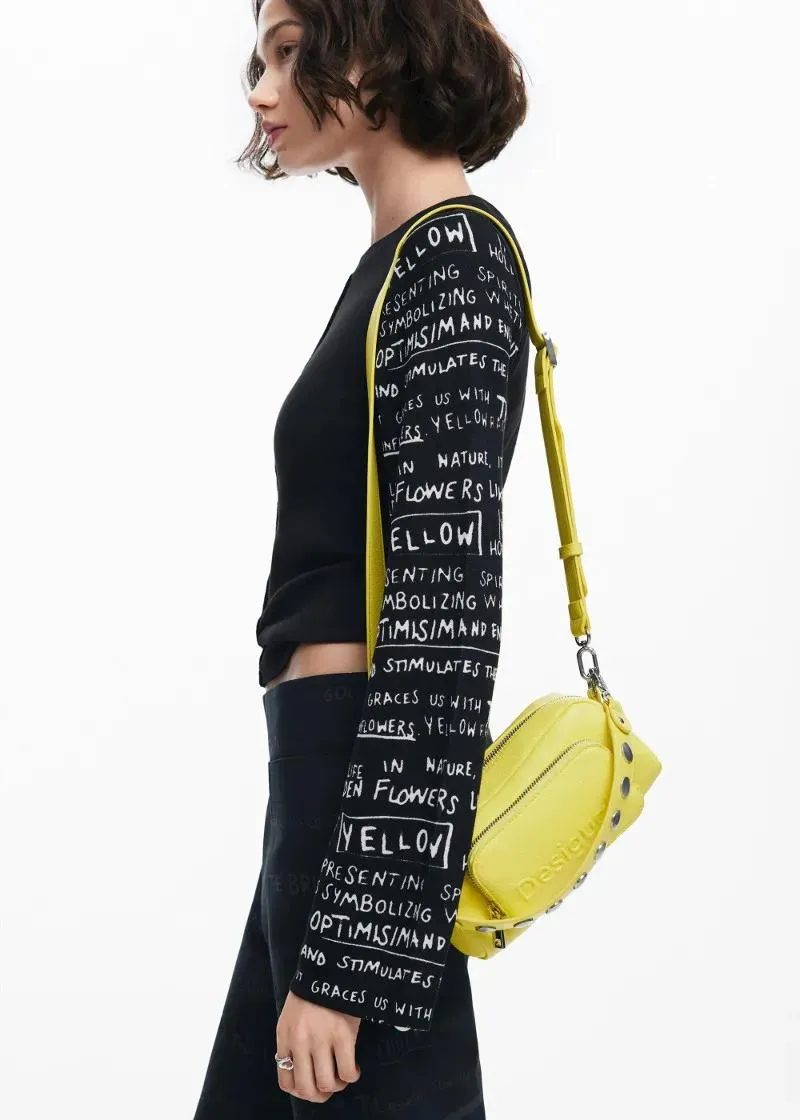 ELLOW
HOL
ESENTING SPIRIT
SYMBOLIZING WHET
OPTIMISIMAND EN
AND STIMULATES THE
GRACES US WITH
ERS. YELLOW
IN NATURE, I
FLOWERS LI
ELLOW
HO
SENTING SPI
MBOLIZING W
TIMISIMAND EN
STIMULATES THE
GRACES US WITH
LOWERS. YELOW
LIFE IN NATURE,
DEN FLOWERS L
YELLOW
PRESENTIN SP
SYMBOLIZING
OPTIMISIMAND
AND STIMULATES
T GRACES US WITH
Desigual